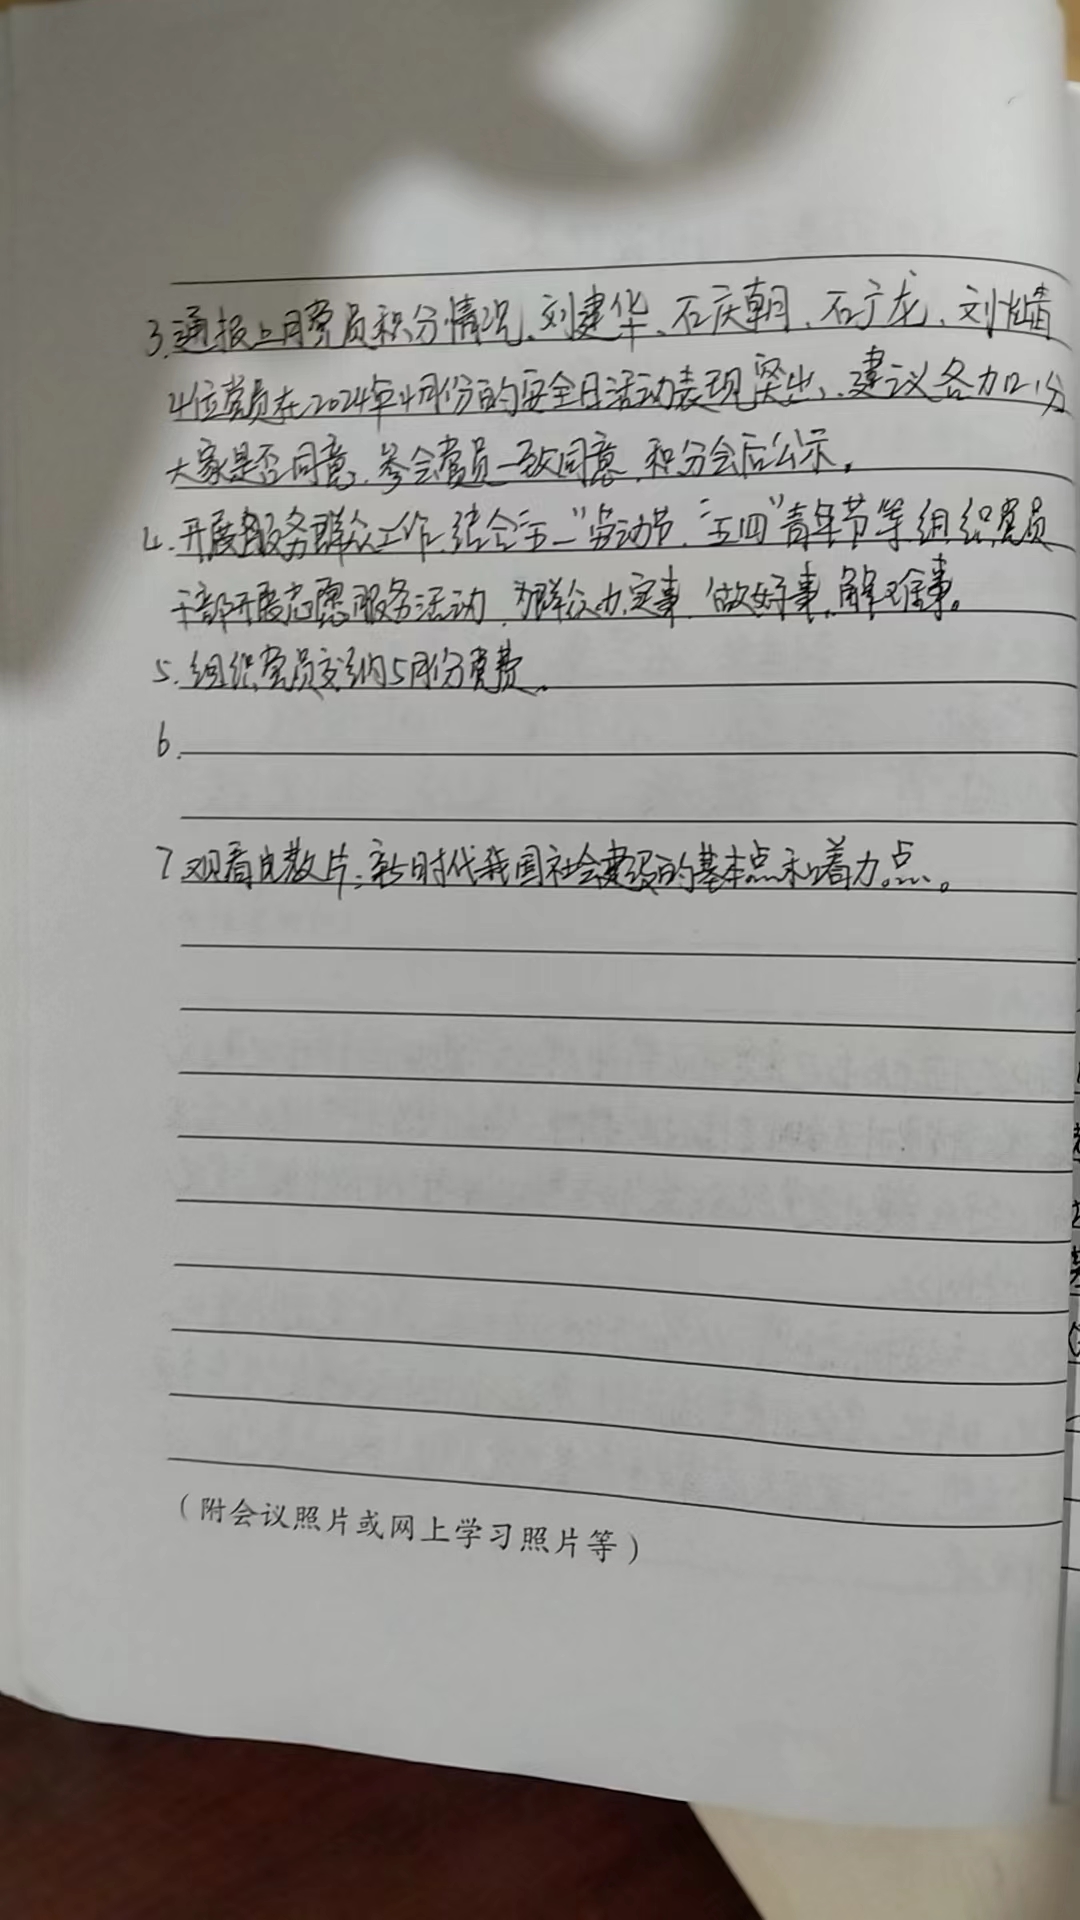 3.通报上月党员积分情况、刘建华、石庆朝、石广龙、刘
4位党员在2024年4月份的安全日活动表现突出、建议各加2分
大家是否同意、参会党员一致同意、积分会后公示。
4.开展服务群众工作、结合五一"劳动节、"五四"青年节等组织党员
干部开展志愿服务活动、为群众办实事、做好事、解难事。
5.组织党员交纳5月份党费、
6.
7.观看电教片:新时代我国社会建设的基本点和着力点。
(附会议照片或网上学习照片等)